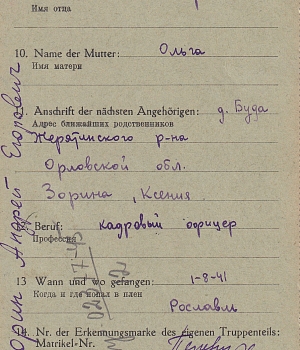 Имя отца
10. Name der Mutter: Ольга
Имя матери
11. Anschrift der nächsten Angehörigen: д. Буда
Адрес ближайших родственников
Жерятинского р-на
Орловской обл.
Зорина, Ксения
12. Beruf: кадровый офицер
Профессия
13 Wann und wo gefangen: 1-8-41
Когда и где попал в плен
Рославль
14. Nr. der Erkennungsmarke des eigenen Truppenteils:
Matrikel-Nr.
Зорин Андрей Егорович